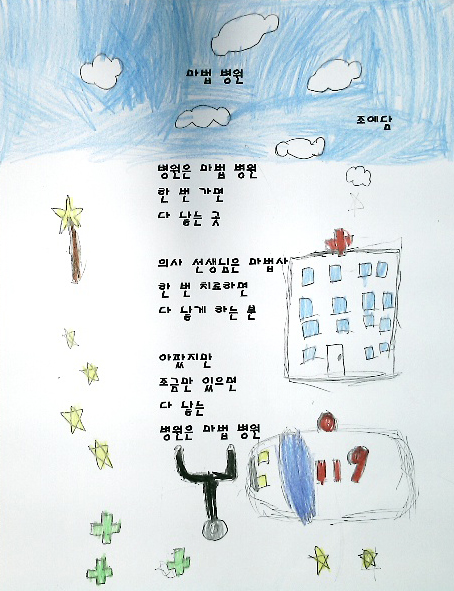 마법 병원
조예담
병원은 마법 병원
한 번 가면
다 낳는 곳
의사 선생님은 마법사
한 번 치료하면
다 낳게 하는 분
아팠지만
조금만 있으면
다 낳는
병원은 마법 병원
119